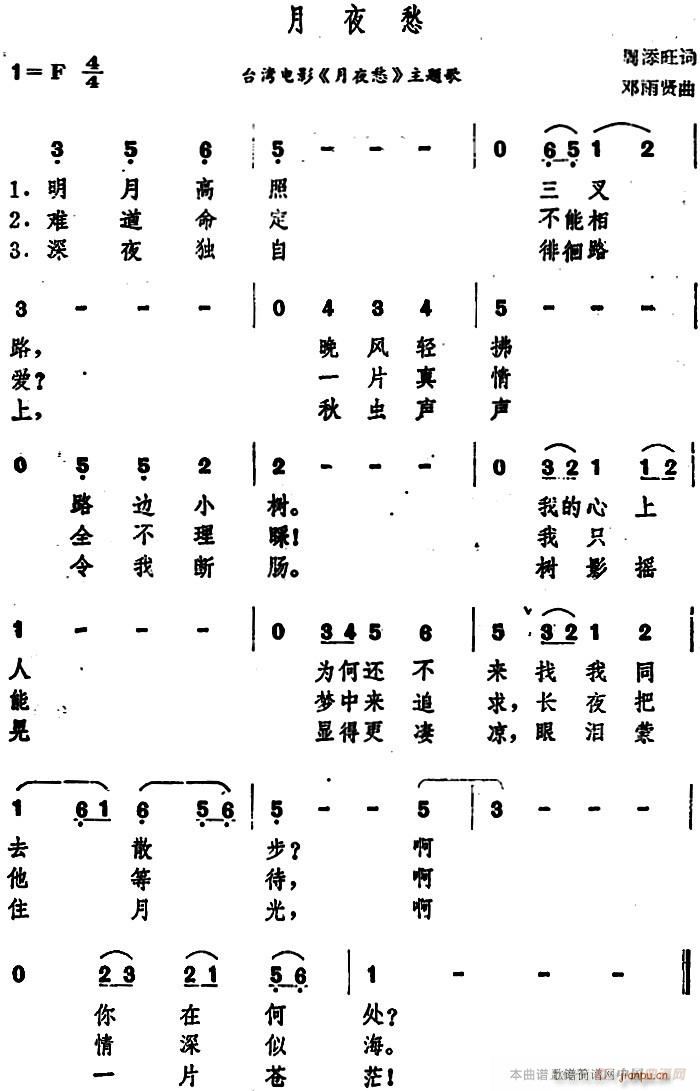 月夜愁
1=F 4/4
台湾电影《月夜愁》主题歌
周添旺词
邓雨贤曲
3 5 6 | 5 - - - | 0 65 1 2 |
1.明月高照 三叉
2.难道命定 不能相
3.深夜独自 徘徊路
3 - - - | 0 4 3 4 | 5 - - - |
路, 晚风轻拂
爱? 一片真情
上, 秋虫声声
0 5 5 2 | 2 - - - | 0 32 1 12 |
路边小树。 我的心上
全不理睬! 我只
令我断肠。 树影摇
1 - - - | 0 34 5 6 | 5 32 1 2 |
人 为何还不来找我同
能 梦中来追求,长夜把
晃 显得更凄凉,眼泪蒙
1 61 6 56 | 5 - - 5 | 3 - - - |
去散步? 啊
他等待, 啊
住月光, 啊
0 23 21 56 | 1 - - - ‖
你在何处?
情深似海。
一片苍茫!
本曲谱 歌谱简谱网 中网
jianpu.cn